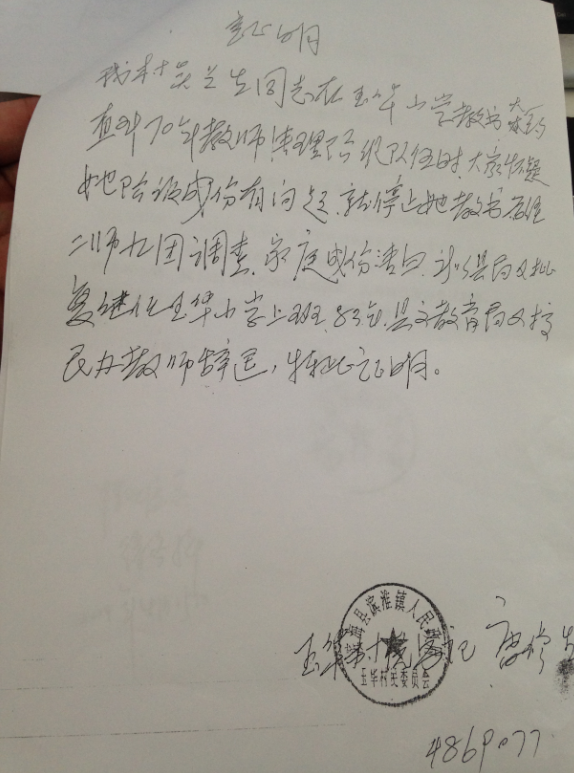 证明
我村吴兰生同志在玉华小学教书 大约
直到70年教师清理阶级队伍时,大家怀疑
她阶级成份有问题,就停止她教书,
二师九团调查,家庭成份清白,县局又批
复继任玉华小学上班,83年,县文教育局又按
民办教师辞退,特此证明。
县滨淮镇人民
玉华村民委员会
玉华村 书记 唐
4869077